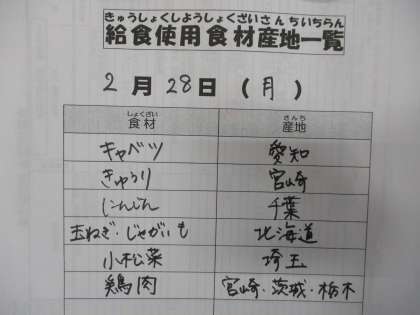 きゅうしょくしようしょくざいさんちいちらん
給食使用食材産地一覧
2月28日(月)
しょくざい さんち
食材 産地
キャベツ 愛知
きゅうり 宮崎
にんじん 千葉
玉ねぎ・じゃがいも 北海道
小松菜 埼玉
鶏肉 宮崎・茨城・栃木